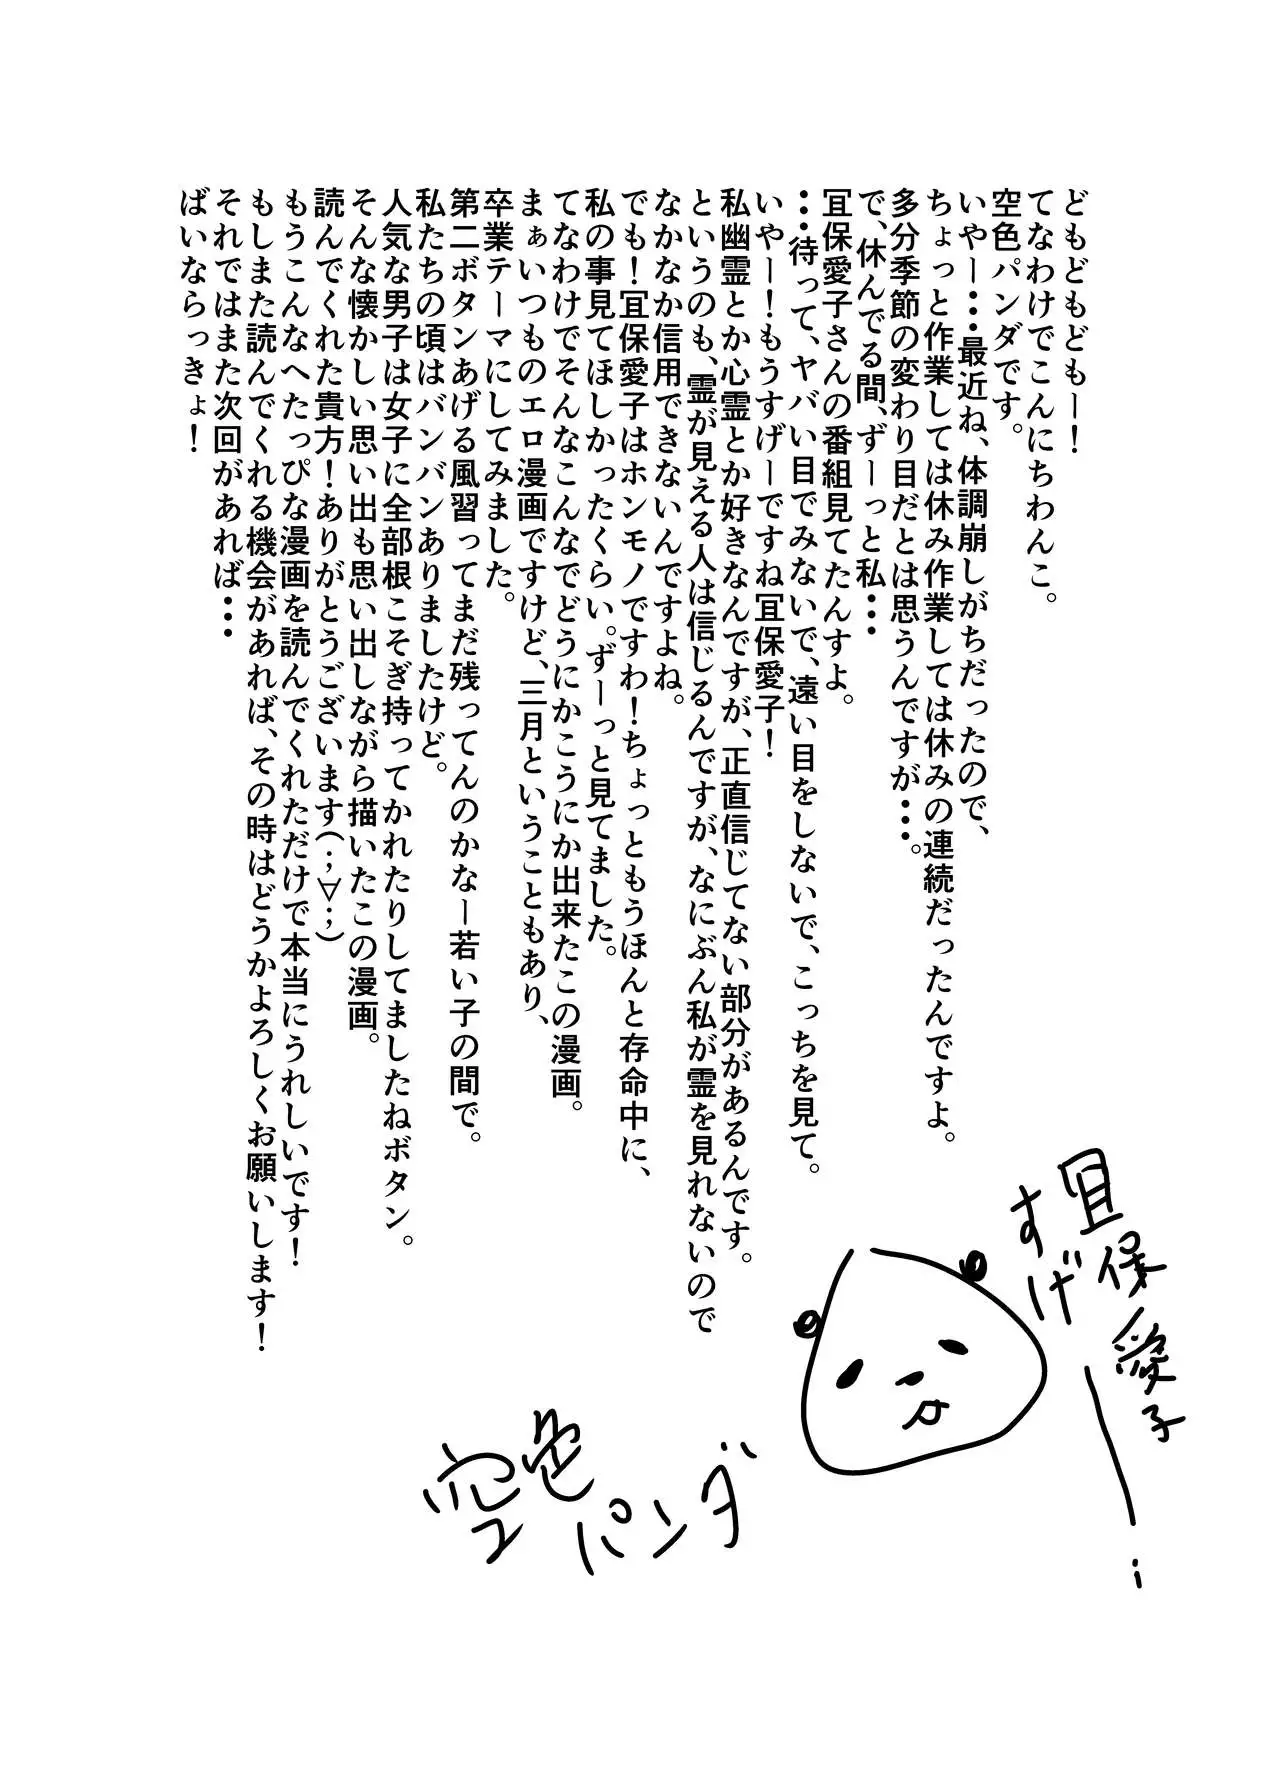 どもどもどもー！
てなわけでこんにちわんこ。
空色パンダです。
いやー・・・最近ね、体調崩しがちだったので、
ちょっと作業しては休み作業しては休みの連続だったんですよ。
多分季節の変わり目だとは思うんですが・・・。
で、休んでる間、ずーっと私・・・
宜保愛子さんの番組見てたんすよ。
・・・待って、ヤバい目でみないで、遠い目をしないで、こっちを見て。
いやー！もうすげーですね宜保愛子！
私幽霊とか心霊とか好きなんですが、正直信じてない部分があるんです。
というのも、霊が見える人は信じるんですが、なにぶん私が霊を見れないので
なかなか信用できないんですよね。
でも！宜保愛子はホンモノですわ！ちょっともうほんと存命中に、
私の事見てほしかったくらい。ずーっと見てました。
てなわけでそんなこんなでどうにかこうにか出来たこの漫画。
まぁいつものエロ漫画ですけど、三月ということもあり、
卒業テーマにしてみました。
第二ボタンあげる風習ってまだ残ってんのかなー若い子の間で。
私たちの頃はバンバンありましたけど。
人気な男子は女子に全部根こそぎ持ってかれたりしてましたねボタン。
そんな懐かしい思い出も思い出しながら描いたこの漫画。
読んでくれた貴方！ありがとうございます(；∀；)
もうこんなへたっぴな漫画を読んでくれただけで本当にうれしいです！
もしまた読んでくれる機会があれば、その時はどうかよろしくお願いします！
それではまた次回があれば・・・
ばいならっきょ！
宜保愛子
すげー！
空色パンダ